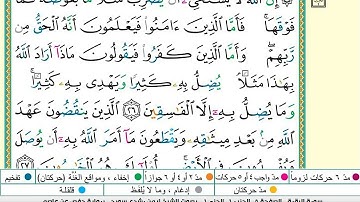 إِنَّ اللَّهَ لَا يَسْتَحْيِي أَن يَضْرِبَ مَثَلًا مَّا بَعُوضَةً فَمَا
فَوْقَهَا ۚ فَأَمَّا الَّذِينَ ءَامَنُوا فَيَعْلَمُونَ أَنَّهُ الْحَقُّ مِن
رَّبِّهِمْ ۖ وَأَمَّا الَّذِينَ كَفَرُوا فَيَقُولُونَ مَاذَا أَرَادَ اللَّهُ
بِهَٰذَا مَثَلًا ۘ يُضِلُّ بِهِ كَثِيرًا وَيَهْدِي بِهِ كَثِيرًا ۚ
وَمَا يُضِلُّ بِهِ إِلَّا الْفَاسِقِينَ ٢٦ الَّذِينَ يَنقُضُونَ عَهْدَ
اللَّهِ مِن بَعْدِ مِيثَاقِهِ وَيَقْطَعُونَ مَا أَمَرَ اللَّهُ بِهِ أَن يُوصَلَ
مدّ ٦ حركات لزوماً مدّ واجب ٤ أو ٥ حركات مدّ ٢ أو ٤ أو ٦ جوازاً إخفاء، ومواقع الغُنَّة (حركتان) تفخيم
مدّ حركتان إدغام، وما لا يُلفَظ قلقلة